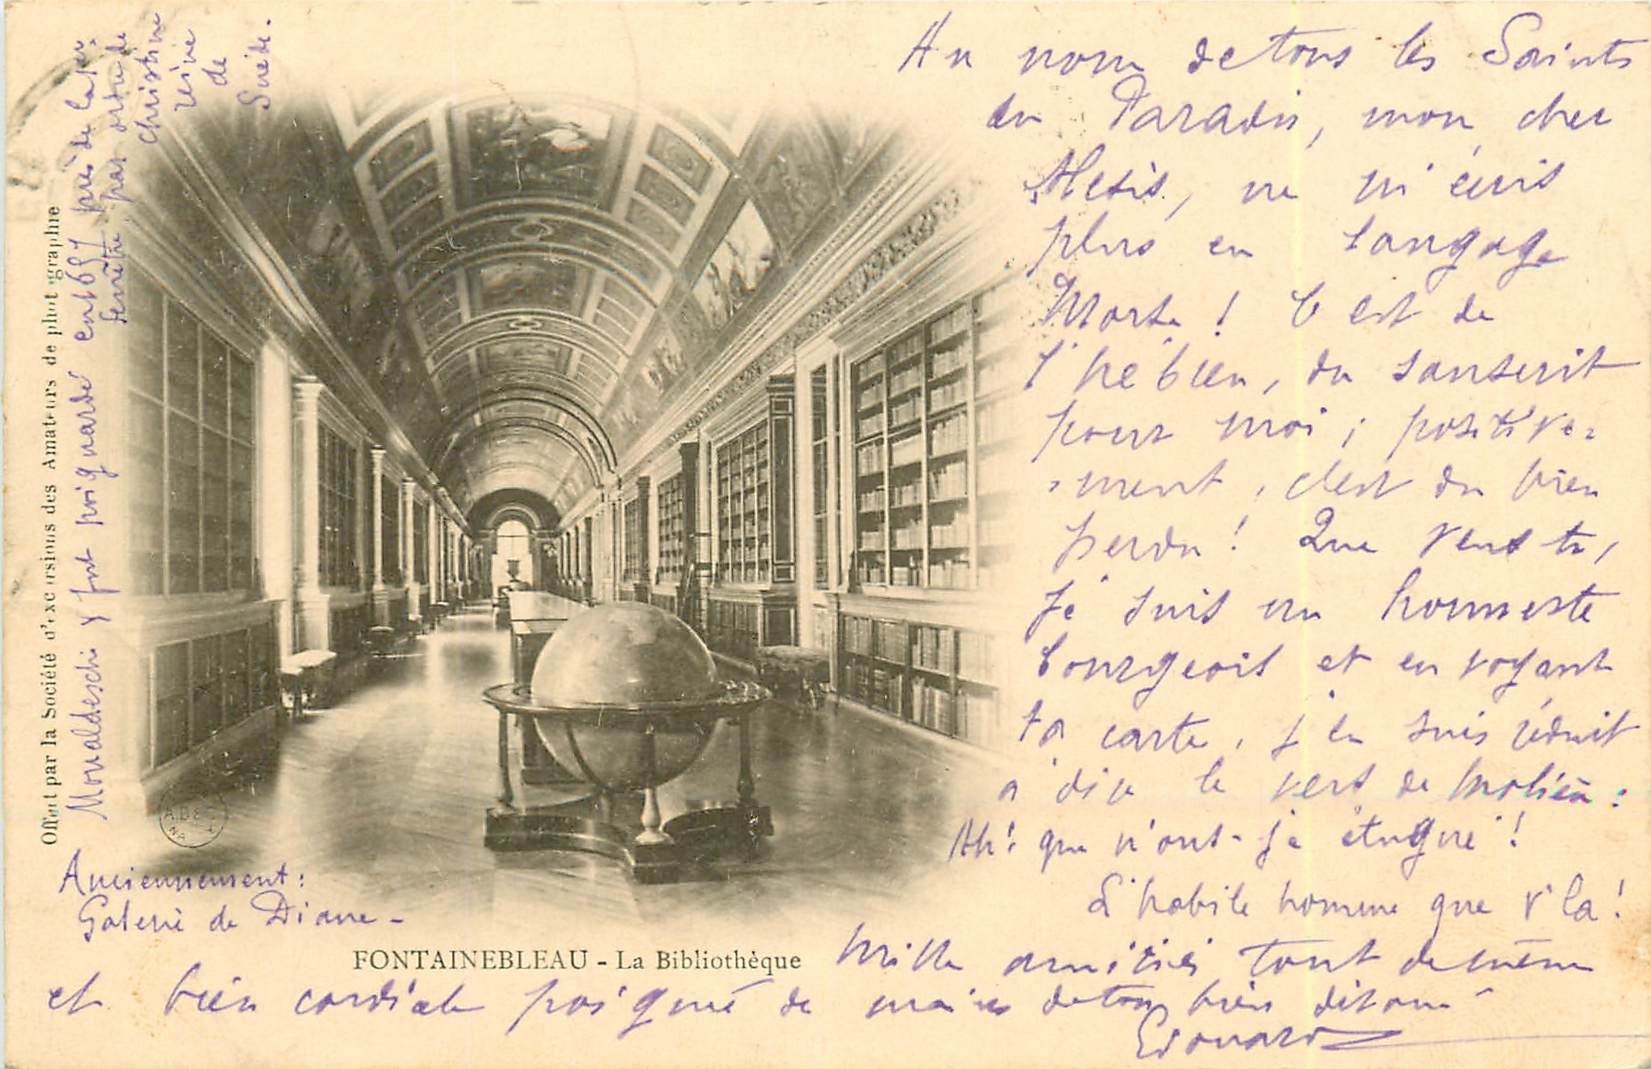 Au nom de tous les Saints
du Paradis, mon cher
Alexis, ne m'écris
plus en Langage
Morte ! C'est de
l'hébreu, du sanscrit
pour moi ; positive-
-ment, c'est du bien
perdu ! Que veux tu,
je suis un honneste
bourgeois et en voyant
ta carte, j'en suis réduit
à dire le vers de Molière :
Ah ! que n'ont-je étugué !
L'habile homme que v'la !
Mille amitiés tout de même
et bien cordiale poignée de mains de ton bien dévoué
Edouard
Anciennement :
Galerie de Diane -
FONTAINEBLEAU - La Bibliothèque
Offert par la Société d'excursions des Amateurs de photographie
Monaldeschi y fut poignardé en 1657 près de la 1ère
fenêtre par ordre de
Christine
reine
de
Suède.